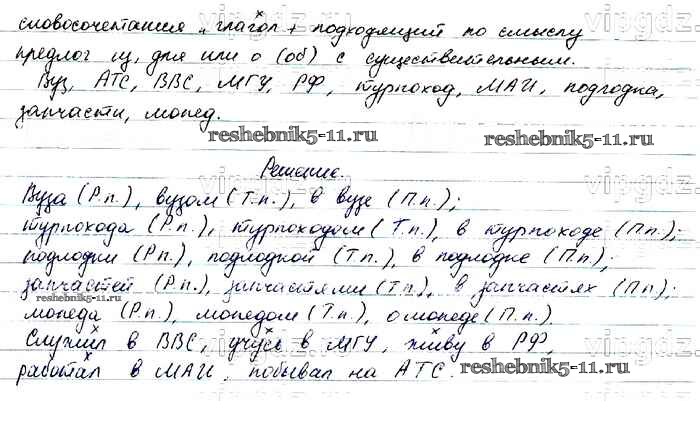 словосочетания „глагол + подходящий по смыслу
предлог из, для или о (об) с существительным.
Вуз, АТС, ВВС, МГУ, РФ, турпоход, МАИ, подлодка,
запчасти, мопед.
reshebnik5-11.ru
reshebnik5-11.ru
Решение.
Вуза (Р.п.), вузом (Т.п.), в вузе (П.п.);
турпохода (Р.п.), турпоходом (Т.п.), в турпоходе (П.п.);
подлодки (Р.п.), подлодкой (Т.п.), в подлодке (П.п.);
запчастей (Р.п.), запчастями (Т.п.), в запчастях (П.п.);
reshebnik5-11.ru
мопеда (Р.п.), мопедом (Т.п.), о мопеде (П.п.).
Служил в ВВС, учусь в МГУ, живу в РФ,
работал в МАИ, побывал на АТС.
reshebnik5-11.ru
vipgdz.com